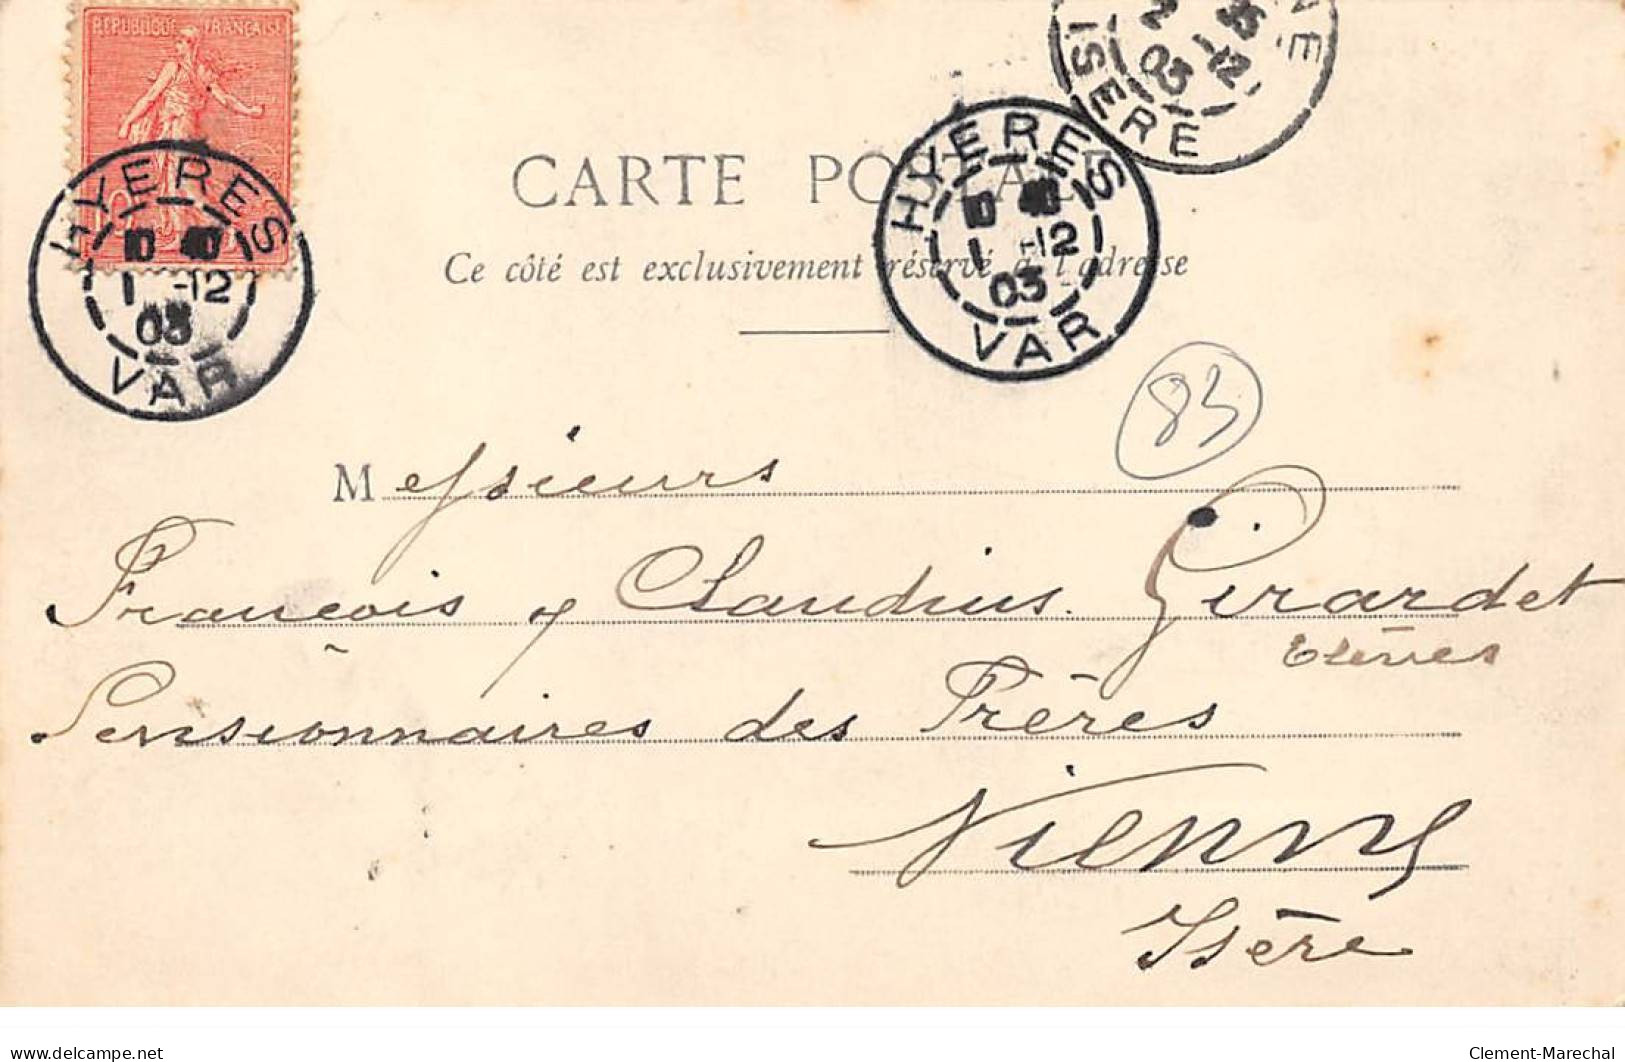 REPUBLIQUE FRANÇAISE
10
HYERES
1 -12
03
VAR
HYERES
1 -12
03
VAR
NE
2 -12
03
ISERE
CARTE POSTALE
Ce côté est exclusivement réservé à l'adresse
83
Messieurs
François & Claudius Girardet
Elèves
Pensionnaires des Frères
Vienne
Isère
www.delcampe.net
Clement-Marechal